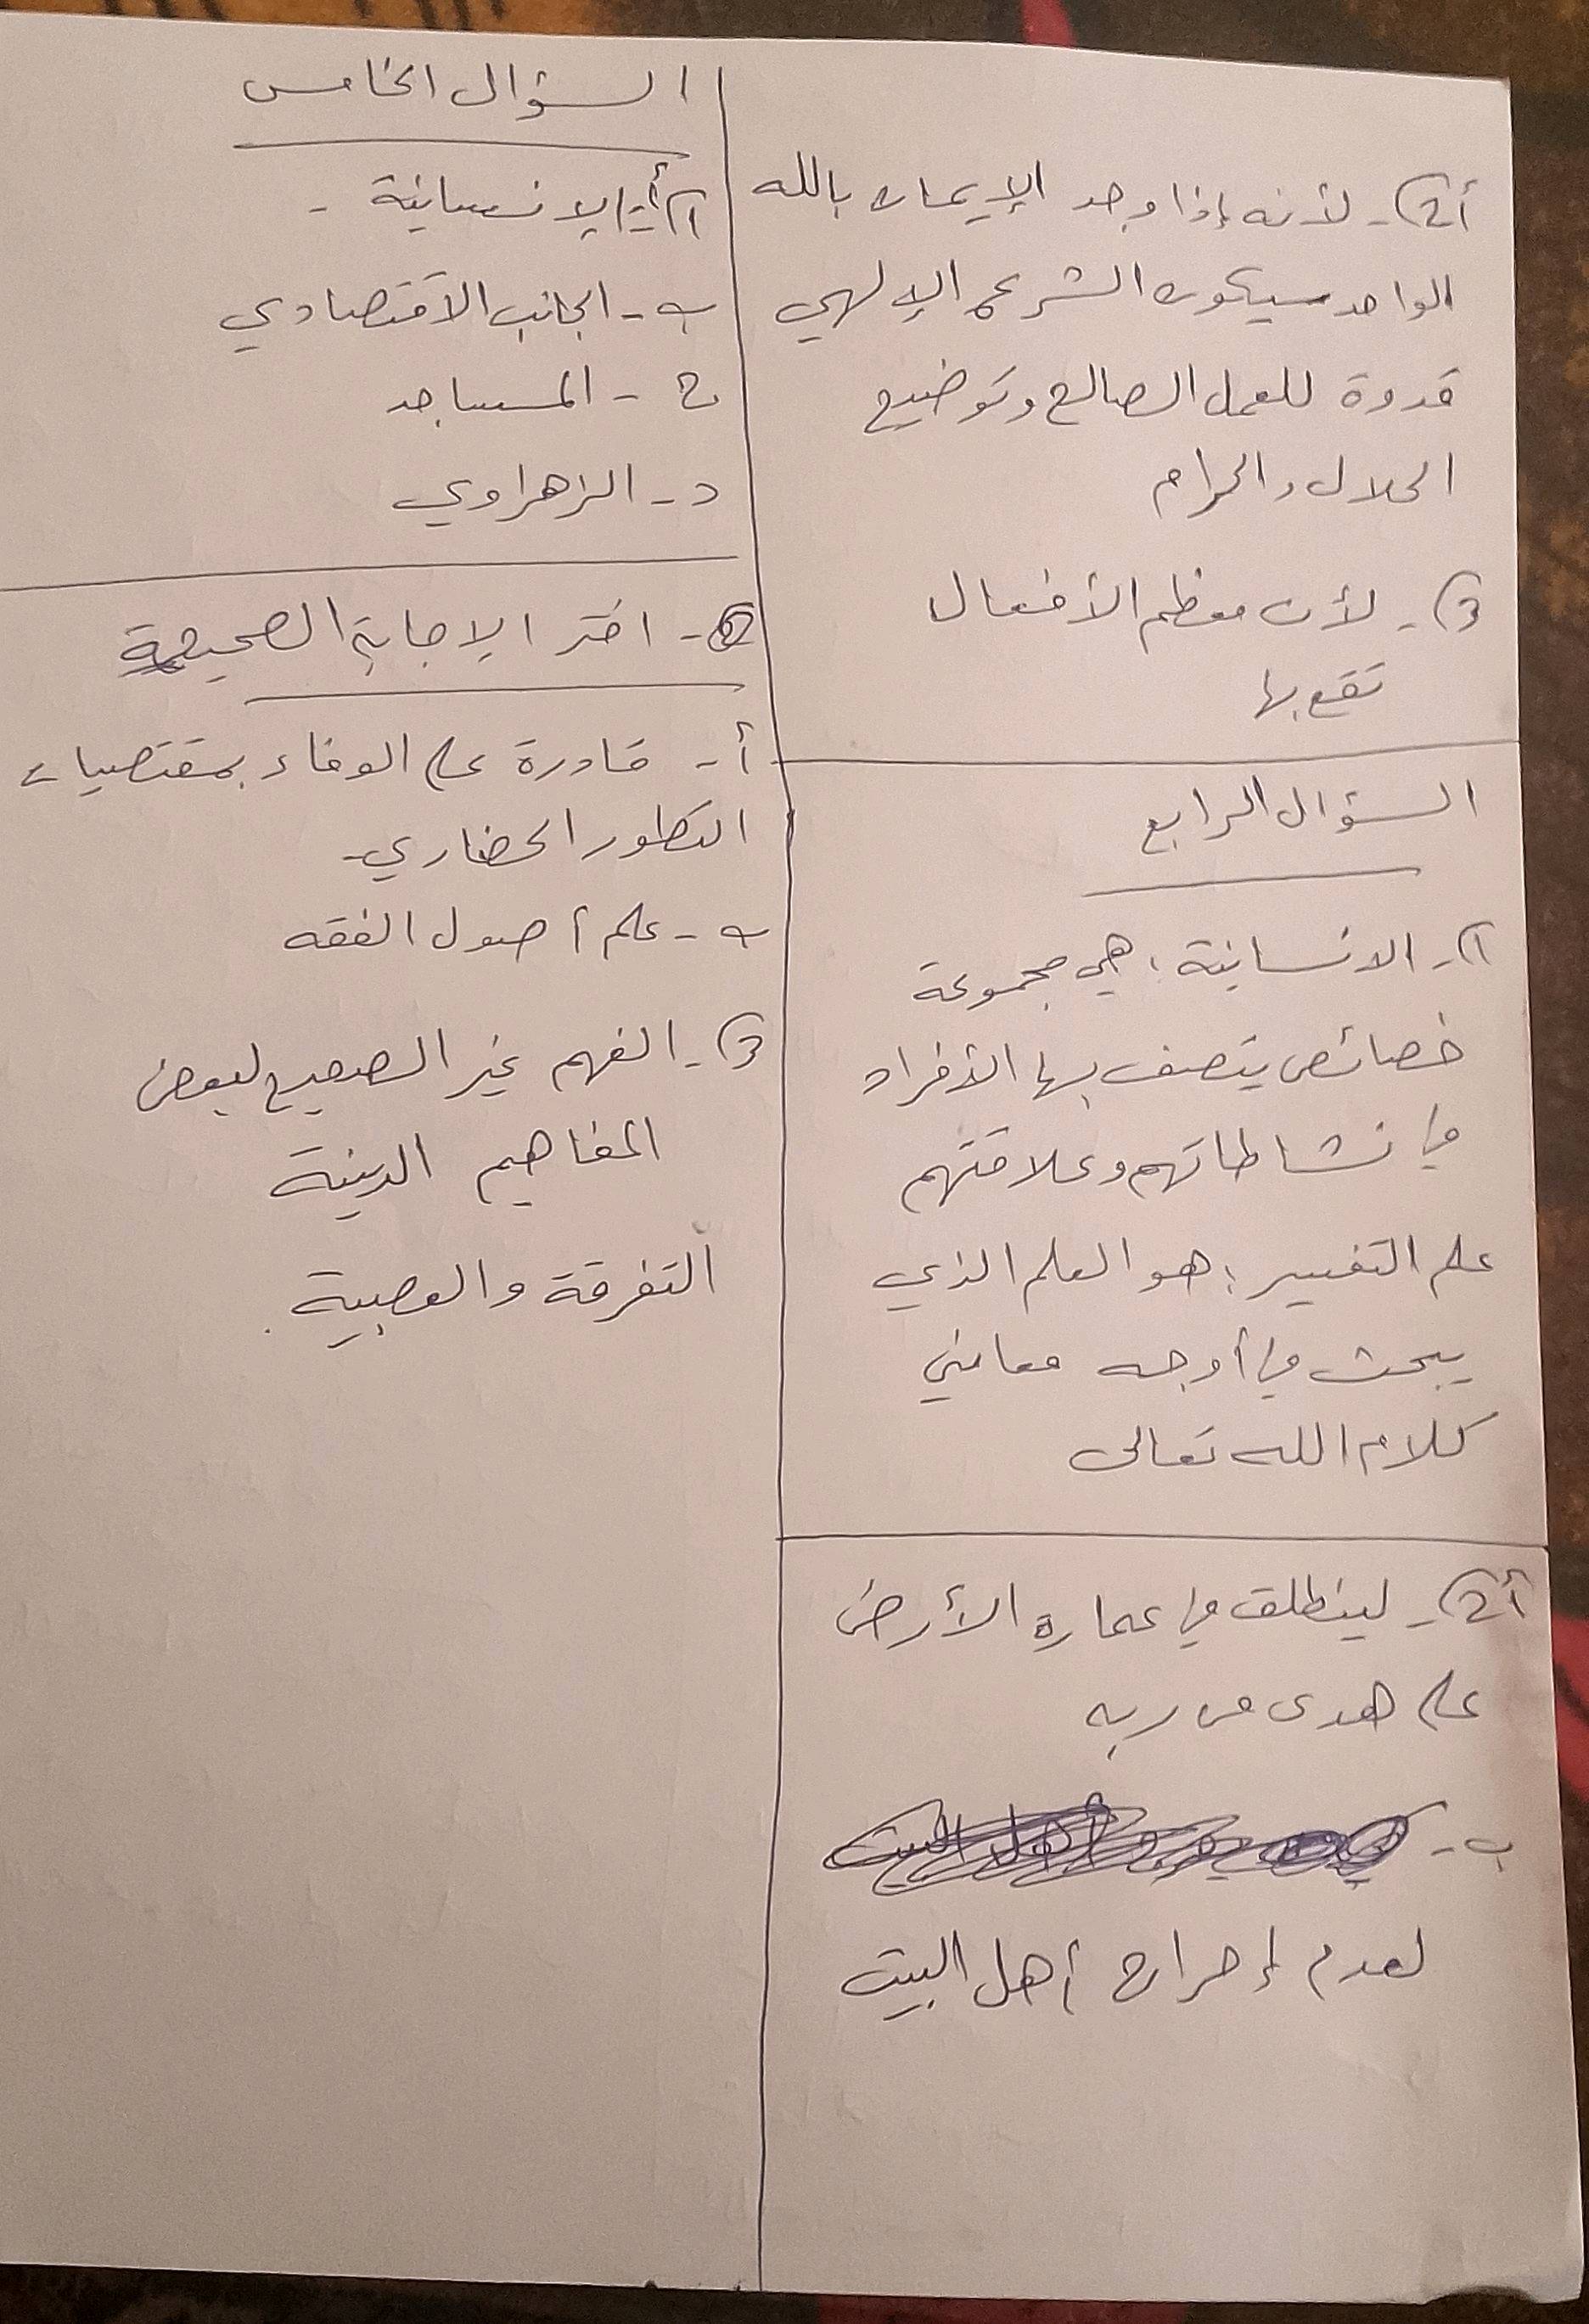 أ 2)- لأنه إذا وجد الإيمان بالله
الواحد سيكون الشرع الإلهي
قدوة للعمل الصالح وتوضيح
الحلال والحرام
3)- لأن معظم الأفعال
تقع بها
السؤال الرابع
1)- الانسانية: هي مجموعة
خصائص يتصف بها الأفراد
في نشاطاتهم وعلاقتهم
علم التفسير: هو العلم الذي
يبحث في أوجه معاني
كلام الله تعالى
أ 2)- لينطلق في عمارة الأرض
على هدى من ربه
ب-
لعدم إحراج أهل البيت
السؤال الخامس
1) أ- الإنسانية -
ب- الجانب الاقتصادي
ج- المساجد
د- الزهراوي
2- اختر الإجابة الصحيحة
أ- قادرة على الوفاء بمقتضيات
التطور الحضاري-
ب- علم أصول الفقه
3)- الفهم غير الصحيح لبعض
المفاهيم الدينية
التفرقة والعصبية.